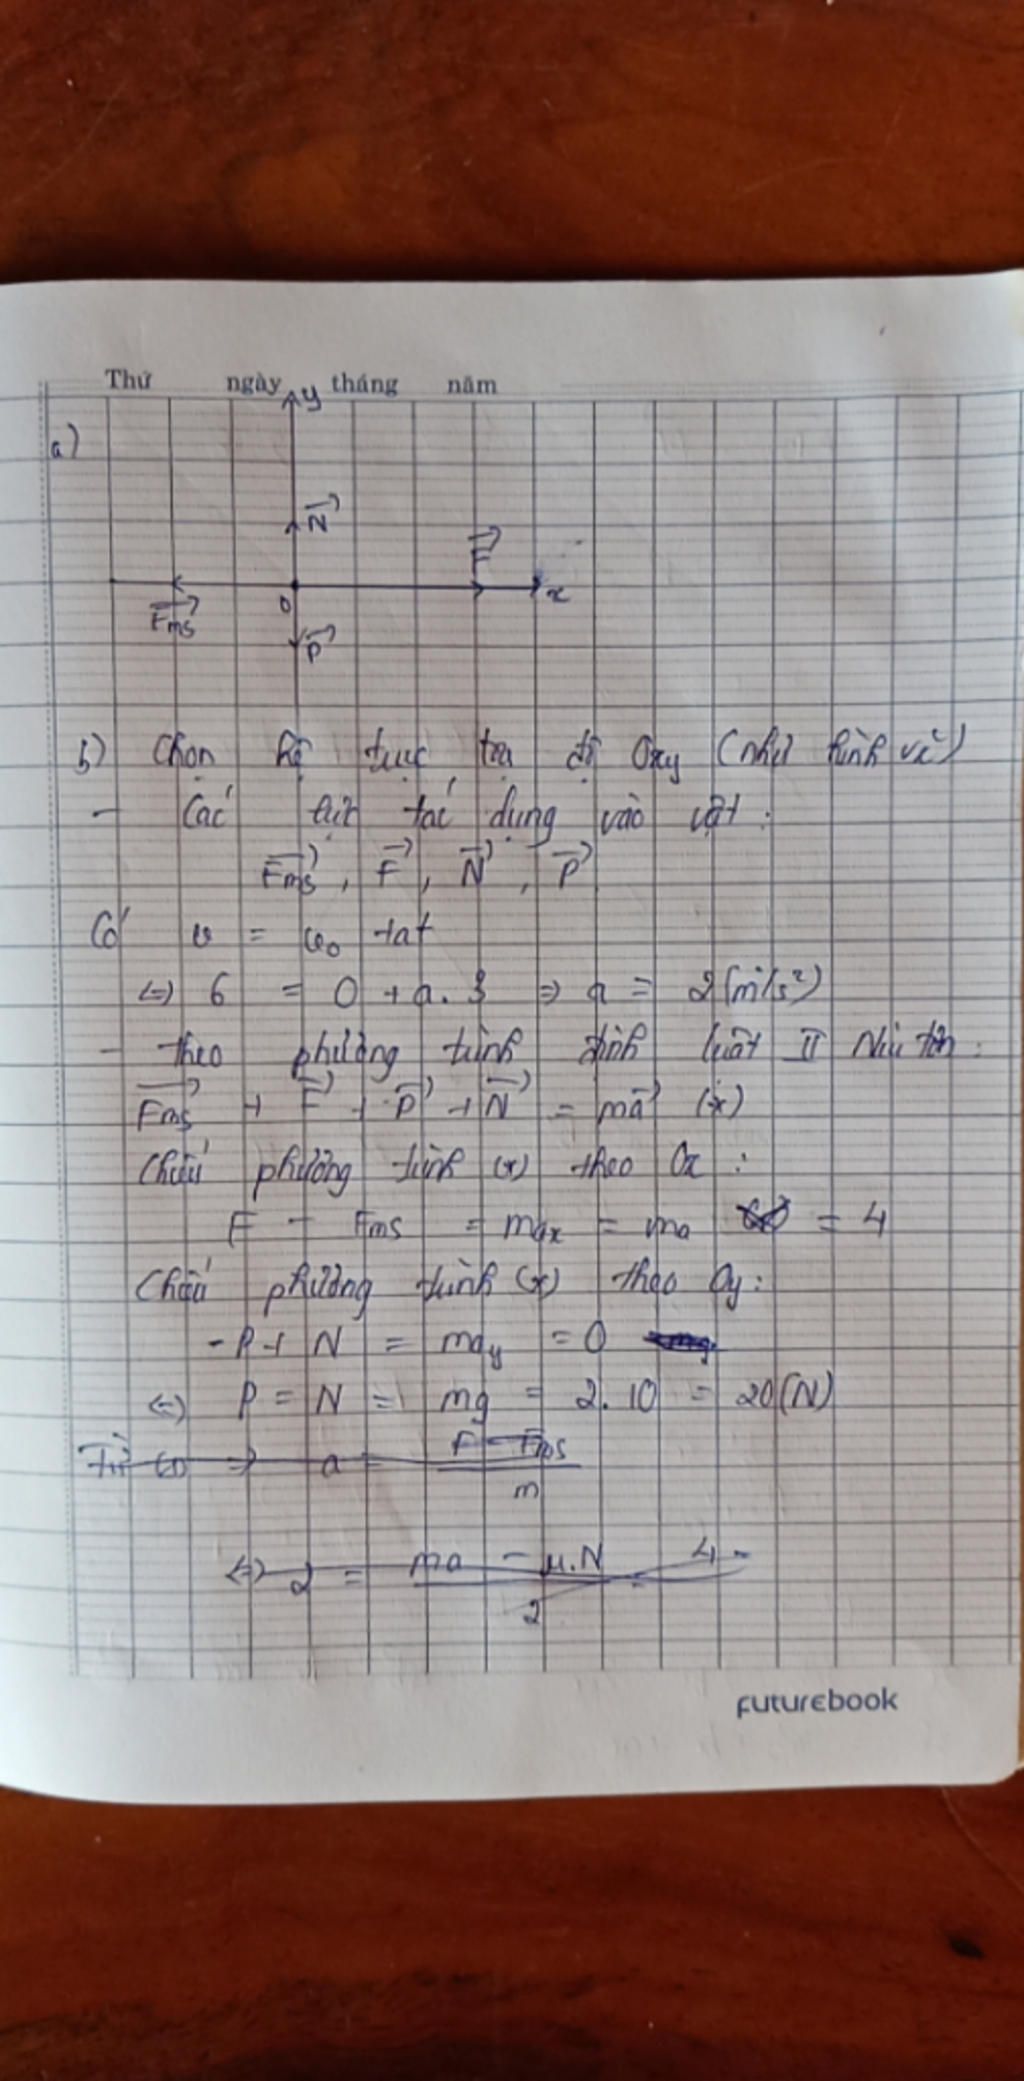 Thứ ngày tháng năm
y
a)
N
F
x
O
Fms
P
b) Chọn hệ trục tọa độ Oxy (như hình vẽ)
- Các lực tác dụng vào vật :
Fms, F, N, P
Có v = v₀ + at
<=> 6 = 0 + a. 3 => a = 2 (m/s²)
- Theo phương trình định luật II Niu tơn :
Fms + F + P + N = ma (x)
Chiếu phương trình (x) theo Ox :
F - Fms = max = ma = 4
Chiếu phương trình (x) theo Oy :
-P + N = may = 0
<=> P = N = mg = 2. 10 = 20 (N)
Từ (x) => a = F - Fms
m
<=> 2 = ma - μ.N = 4 -
2
Futurebook